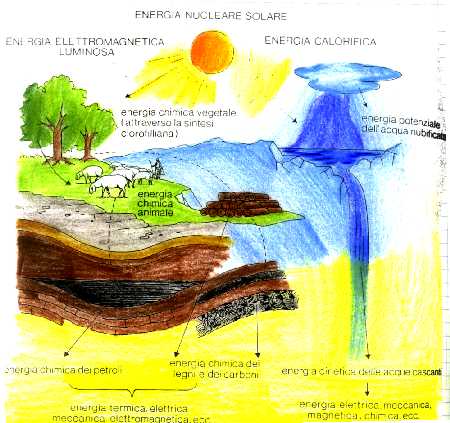 ENERGIA NUCLEARE SOLARE
ENERGIA ELETTROMAGNETICA
LUMINOSA
ENERGIA CALORIFICA
energia chimica vegetale
(attraverso la sintesi
clorofilliana)
energia potenziale
dell'acqua nubificata
energia
chimica
animale
energia chimica dei petroli
energia chimica dei
legni e dei carboni
energia cinetica delle acque cascanti
energia termica, elettrica
meccanica, elettromagnetica, ecc.
energia elettrica, meccanica,
magnetica, chimica, ecc.